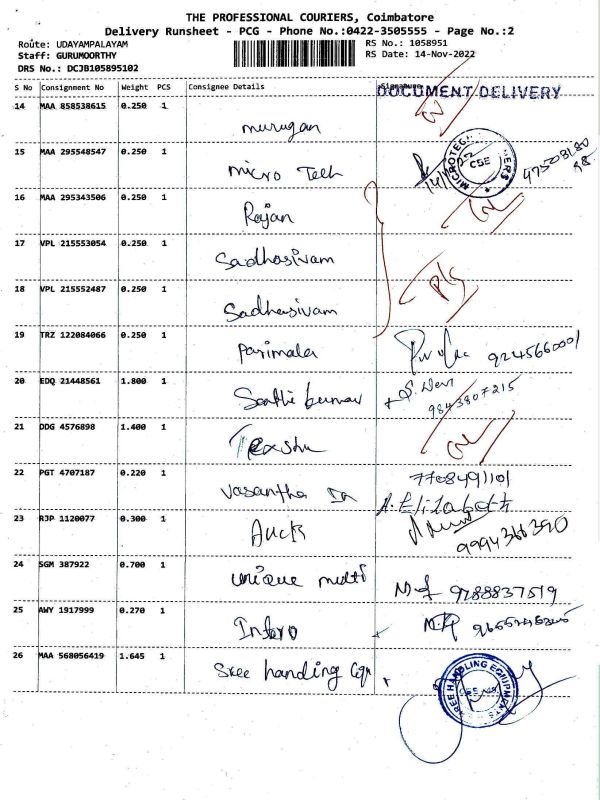 THE PROFESSIONAL COURIERS, Coimbatore
Delivery Runsheet - PCG - Phone No.:0422-3505555 - Page No.:2
Route: UDAYAMPALAYAM
Staff: GURUMOORTHY
DRS No.: DCJB105895102
RS No.: 1058951
RS Date: 14-Nov-2022
S No Consignment No Weight PCS Consignee Details Signature
DOCUMENT DELIVERY
14 MAA 858538615 0.250 1
murugan
15 MAA 295548547 0.250 1
micro Tech
CSE
16 MAA 295343506 0.250 1
Rajan
17 VPL 215553054 0.250 1
Sadhasivam
18 VPL 215552487 0.250 1
Sadhasivam
19 TRZ 122084066 0.250 1
Parimala
9245660001
20 EDQ 21448561 1.800 1
Senthi kumar
S. Devi
9843807215
21 DDG 4576898 1.400 1
22 PGT 4707187 0.220 1
Vasantha
7708491101
A. Elizabeth
23 RJP 1120077 0.300 1
9994366390
24 SGM 387922 0.700 1
unique multi
9788837519
25 AWY 1917999 0.270 1
Intero
26 MAA 568056419 1.645 1
Sree handling Eqp
SREE HANDLING EQUIPMENTS